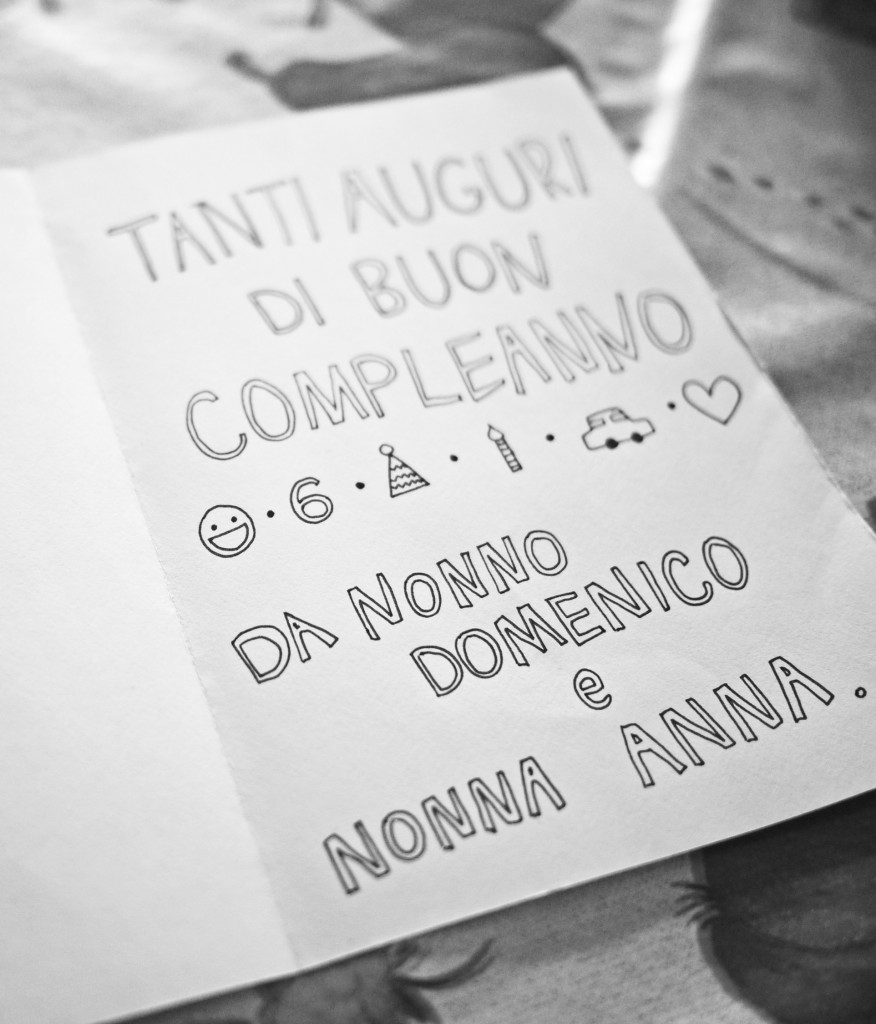 TANTI AUGURI
DI BUON
COMPLEANNO
6
DA NONNO
DOMENICO
e
NONNA ANNA.